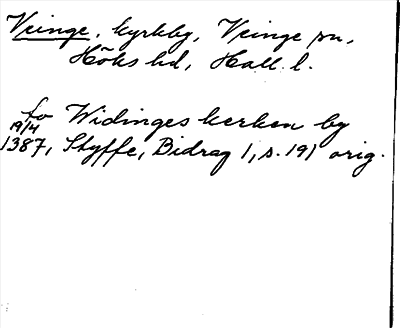 Veinge, kyrkby, Veinge sn,
Höks hd, Hall. l.
fo Widinges kerken by
19/4
1387, Styffe, Bidrag 1, s. 191 orig.